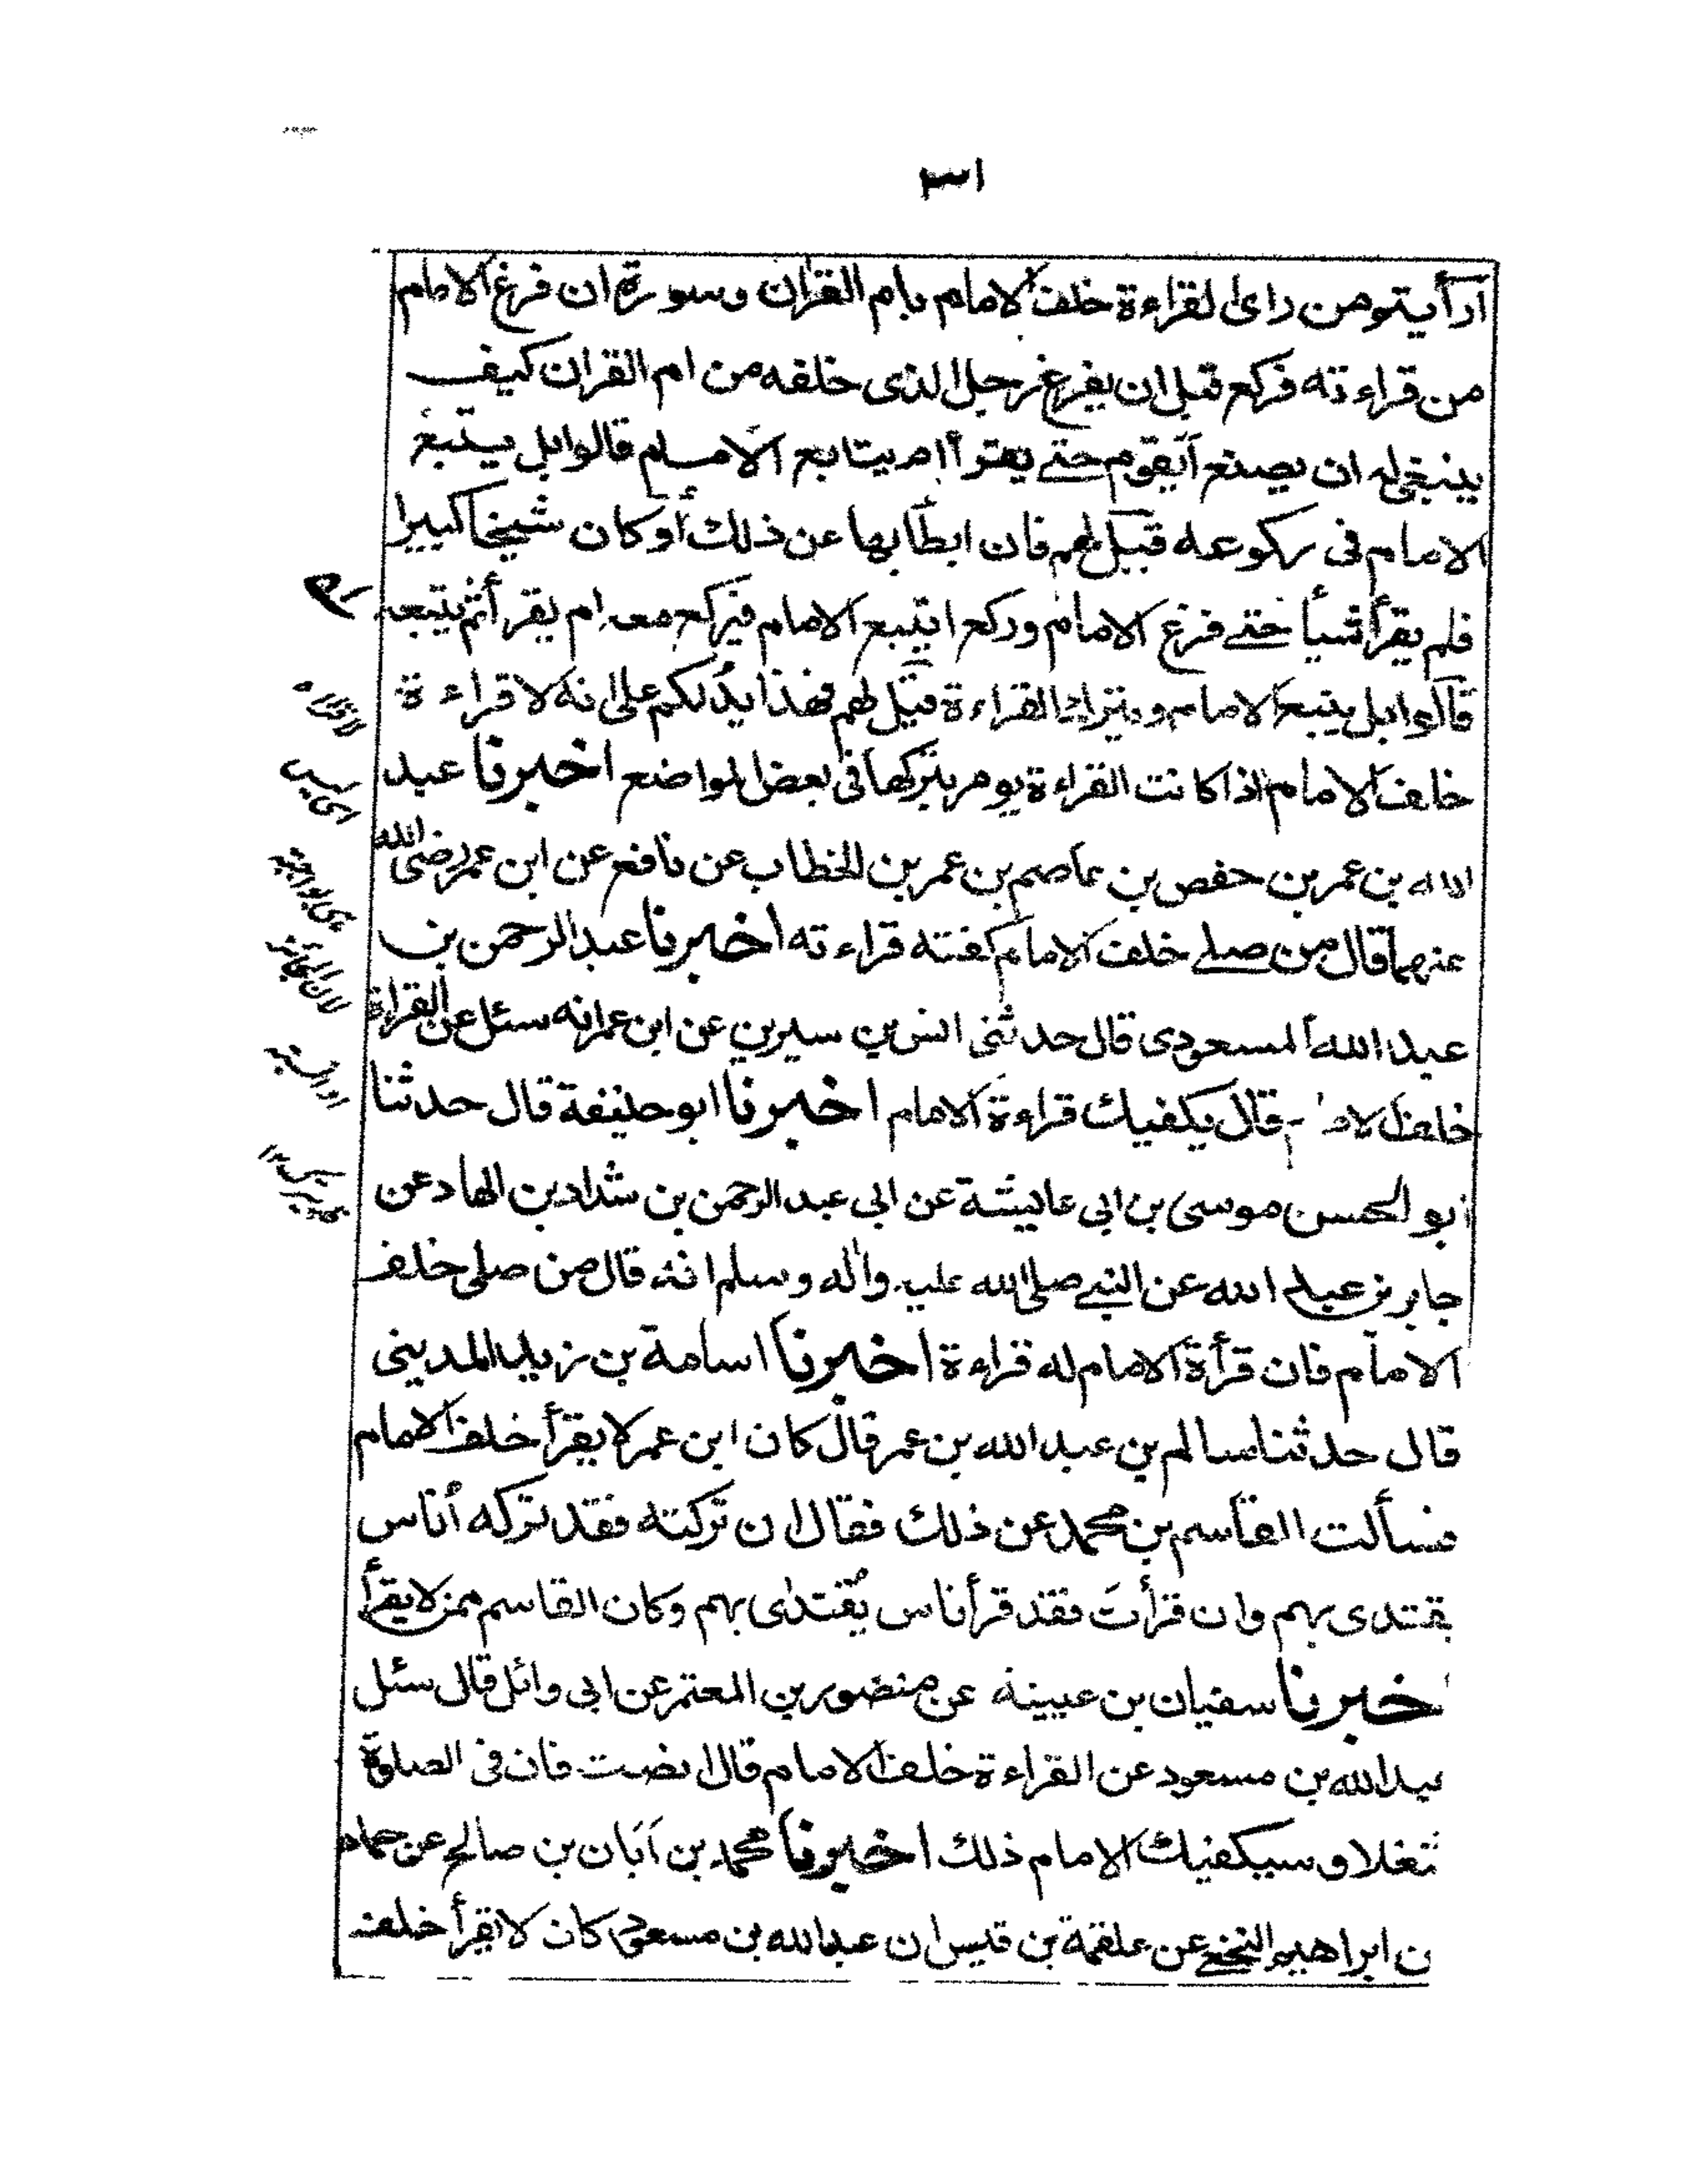 ٣١
أرأيتم من رأى القراءة خلف الامام بام القران وسورة ان فرغ الامام
من قراءته فركع قبل ان يفرغ رجل الذى خلفه من ام القران كيف
ينبغى له ان يصنع أيقوم حتى يقرأ ام يتابع الامام قالوا بل يتبع
الامام فى ركوعه قيل لهم فان ابطأ بها عن ذلك أو كان شيخا كبيرا
فلم يقرأ شيأ حتى فرغ الامام وركع ايتبع الامام فيركع معه ام يقرأ ثم يتبعه
قالوا بل يتبع الامام ويترك القراءة قيل لهم فهذا يدلكم على انه لا قراءة
خلف الامام اذا كانت القراءة يوم يتركها فى بعض المواضع اخبرنا عبيد
الله بن عمر بن حفص بن عاصم بن عمر بن الخطاب عن نافع عن ابن عمر رضى الله
عنهما قال من صلى خلف الامام كفته قراءته اخبرنا عبد الرحمن بن
عبد الله المسعودى قال حدثنى انس بن سيرين عن ابن عمر انه سئل عن القراءة
خلف الامام قال يكفيك قراءة الامام اخبرنا ابو حنيفة قال حدثنا
ابو الحسن موسى بن ابى عايشة عن ابى عبد الرحمن بن شداد بن الهاد عن
جابر بن عبد الله عن النبى صلى الله عليه واله وسلم انه قال من صلى خلف
الامام فان قرأة الامام له قراءة اخبرنا اسامة بن زيد المدينى
قال حدثنا سالم بن عبد الله بن عمر قال كان ابن عمر لا يقرأ خلف الامام
فسألت القاسم بن محمد عن ذلك فقال ان تركته فقد تركه أناس
يقتدى بهم وان قرأت فقد قرأ ناس يقتدى بهم وكان القاسم ممن لا يقرأ
اخبرنا سفيان بن عيينة عن منصور بن المعتمر عن ابى وائل قال سئل
عبد الله بن مسعود عن القراءة خلف الامام قال انصت فان فى الصلوة
شغلا و سيكفيك الامام ذلك اخبرنا محمد بن أبان بن صالح عن حماد
عن ابراهيم النخعى عن علقمة بن قيس ان عبد الله بن مسعود كان لا يقرأ خلف